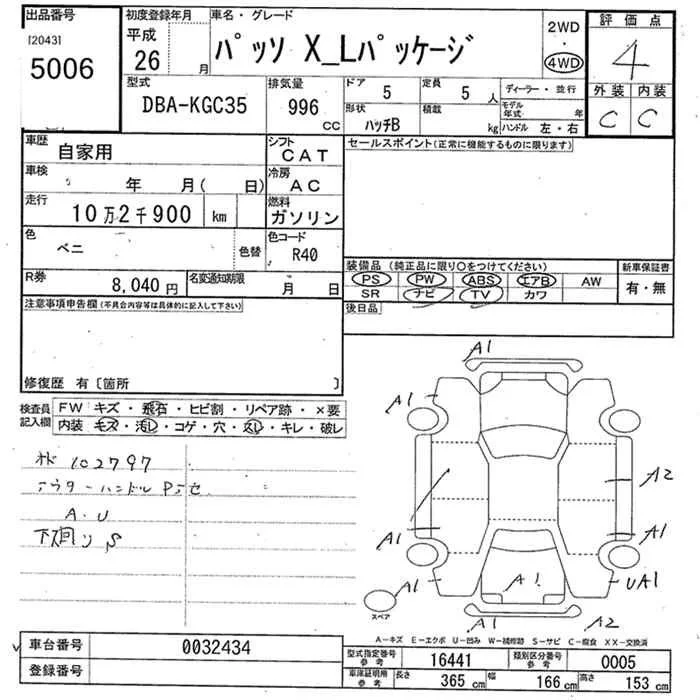 出品番号
[2043]
5006
初度登録年月
平成
26 月
車名・グレード
パッソ X_Lパッケージ
2WD
・
4WD
評価点
4
外装 内装
C C
型式
DBA-KGC35
排気量
996
CC
ドア
5
定員
5 人
形状
ハッチB
積載
kg
ディーラー・並行
モデル年式 年
ハンドル 左・右
車歴
自家用
シフト
CAT
車検
年 月( 日)
冷房
AC
走行
10万2千900 km
燃料
ガソリン
色
ベニ
色替
色コード
R40
R券
8,040 円
名変通知期限
月 日
セールスポイント(正常に機能するものに限ります)
装備品 (純正品に限り○をつけてください)
PS PW ABS エアB AW
SR ナビ TV カワ
新車保証書
有・無
後日品
注意事項申告欄(不具合内容等は具体的に記入して下さい)
修復歴 有〔箇所 〕
検査員
記入欄
FW キズ・飛石・ヒビ割・リペア跡・×要
内装 キズ・汚れ・コゲ・穴・スレ・キレ・破レ
102797
アウターハンドル
A.U
下廻り S
A1
A1
A2
A1
A1
A1
A1
UA1
A1
A2
スペア
A-キズ E-エクボ U-凹み W-補修跡 S-サビ C-腐食 XX-交換済
車台番号
0032434
登録番号
型式指定番号
参考
16441
類別区分番号
参考
0005
車庫証明用
参考
長さ
365 cm
幅
166 cm
高さ
153 cm